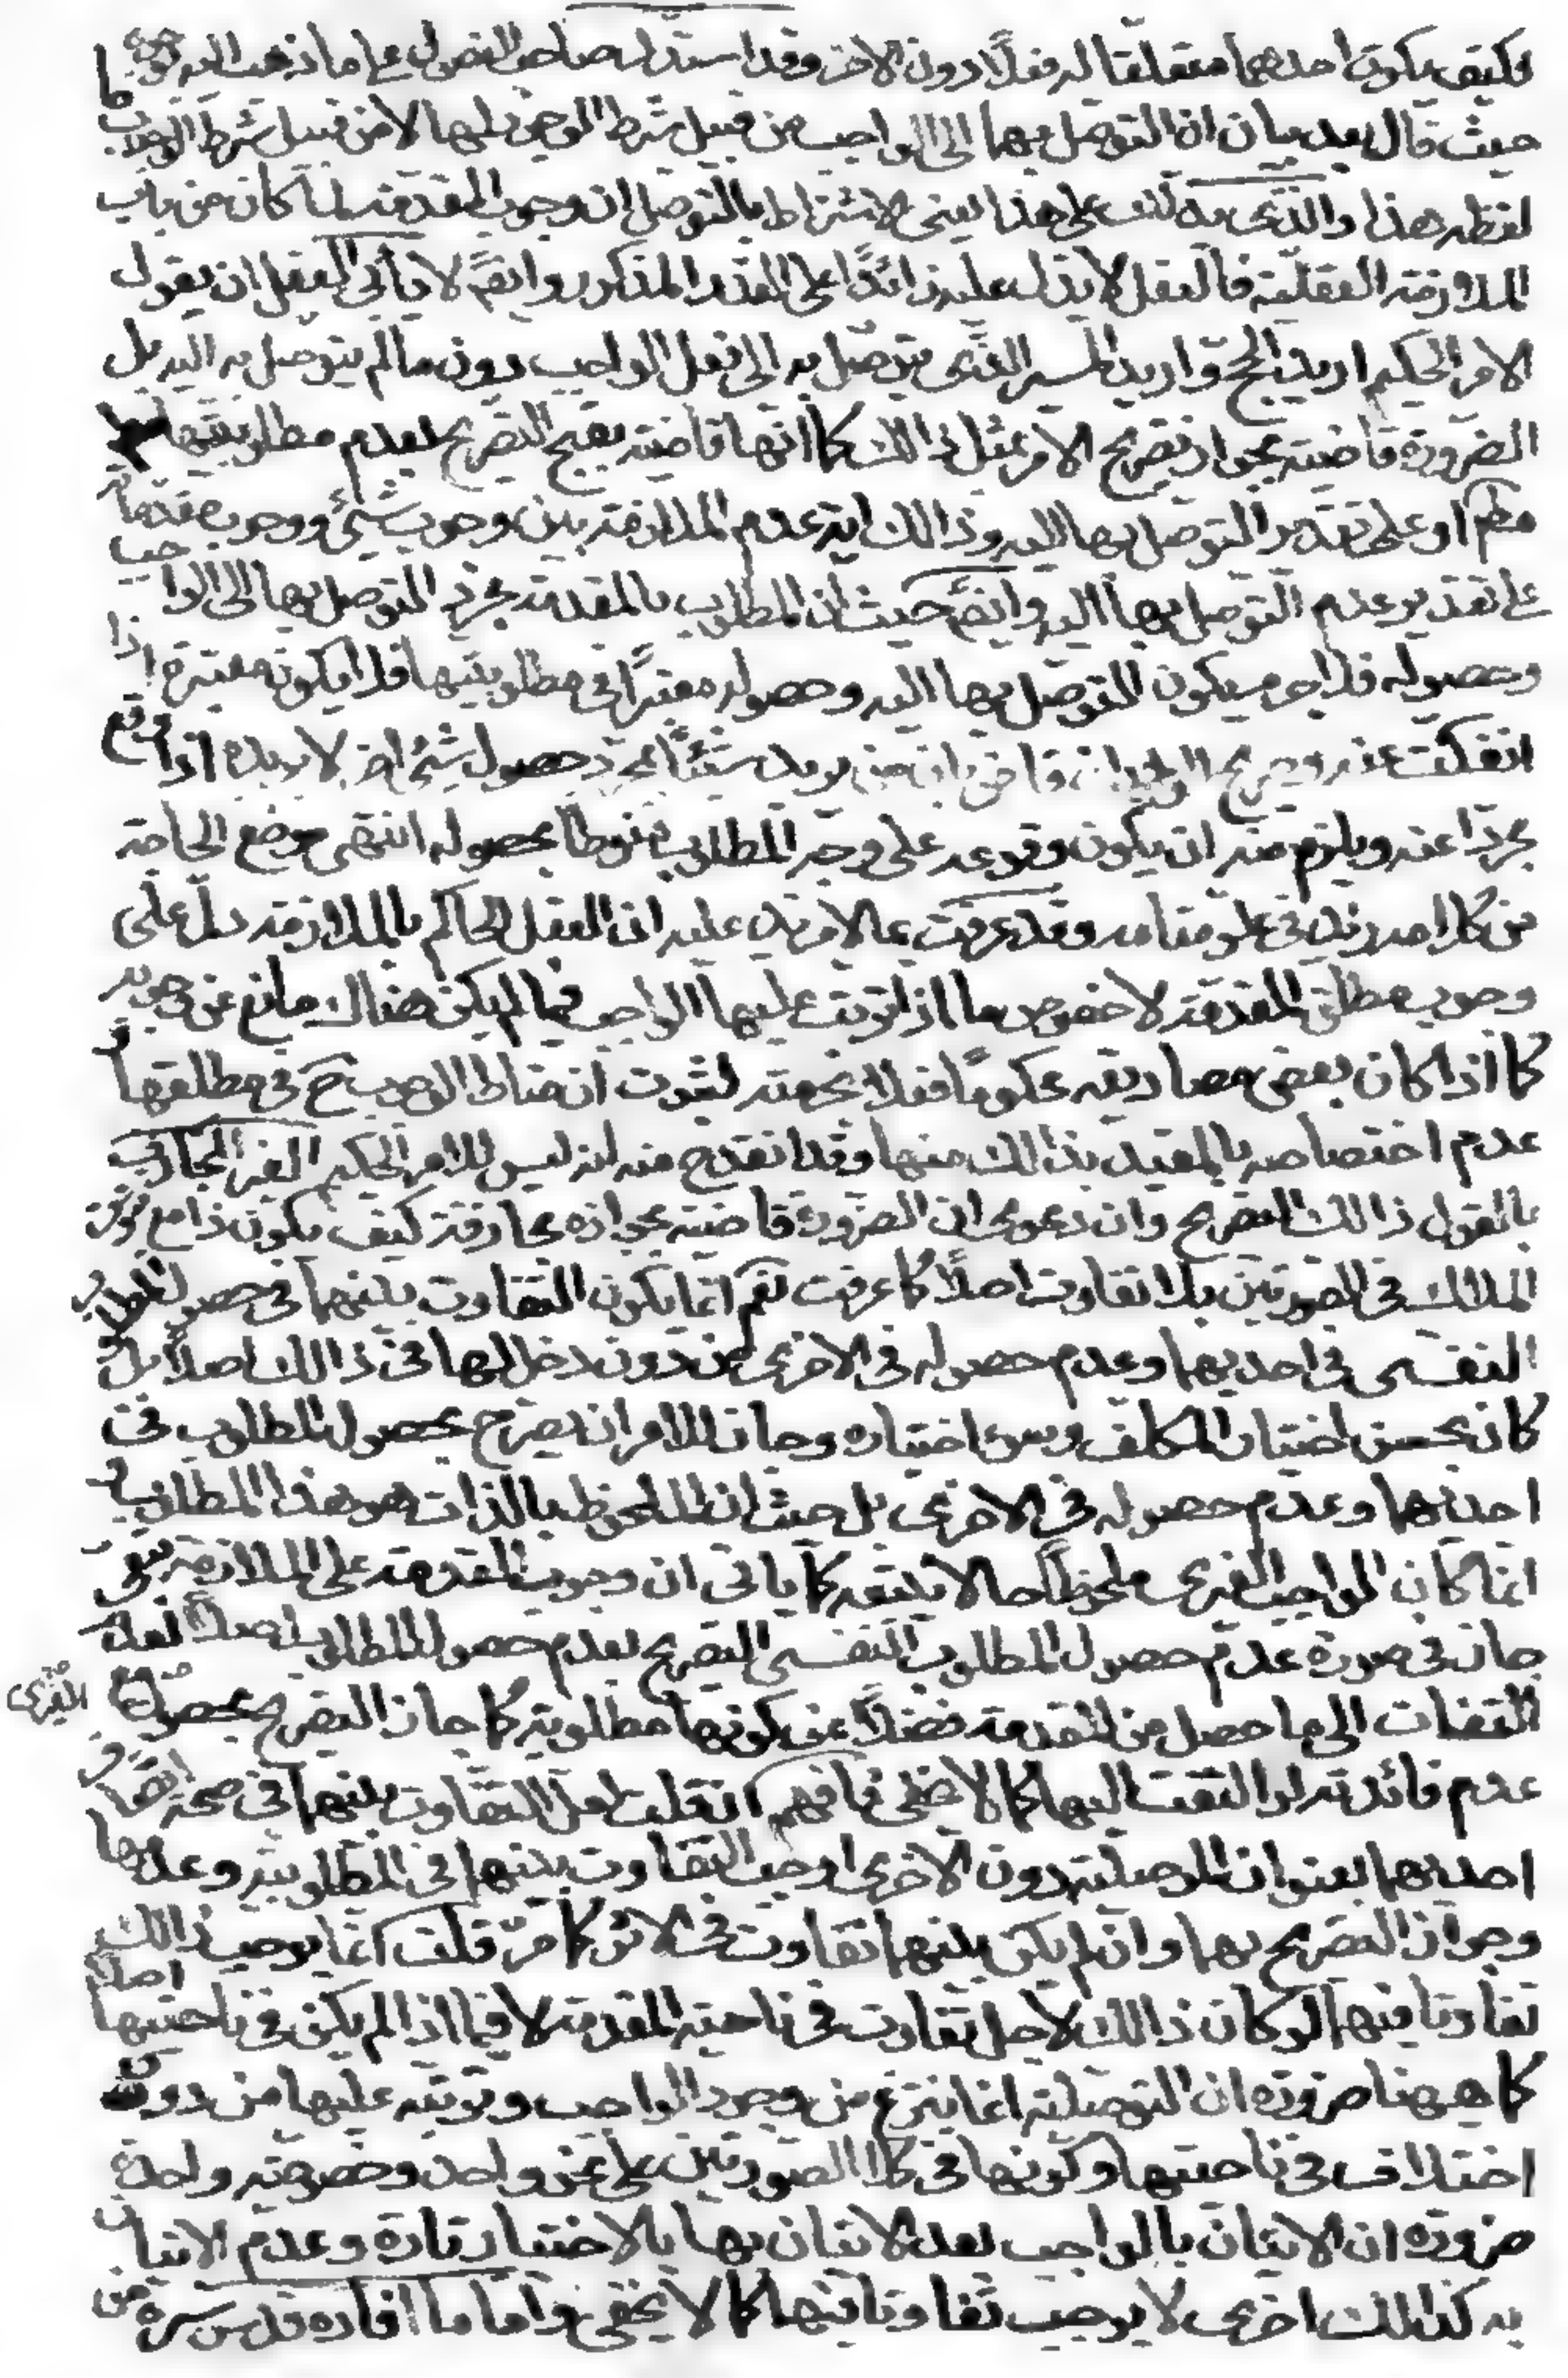 فكيف يكون احدهما متعلقا له فعلًا دون الاخر وقد استدل صاحب الفصول على ما ذهب اليه بوجوه
حيث قال بعد بيان ان التوصل بها الى الواجب من قبيل شرط الوجود لها لا من قبيل شرط الوجوب ما
لفظه هذا والذى يدلك على هذا يعنى الاشتراط بالتوصل ان وجوب المقدمة لما كان من باب
الملازمة العقلية فالعقل لا يدل عليه زائدًا على القدر المذكور وايضًا لا يأبى العقل ان يقول
الامر الحكيم اريد الحج واريد المسير الذى يتوصل به الى فعل الواجب دون ما لم يتوصل به اليه بل
الضرورة قاضية بجواز تصريح الامر بمثل ذالك كما انها قاضية بقبح التصريح بعدم مطلوبيتها له
مطم او على تقدير التوصل بها اليه وذالك اية عدم الملازمة بين وجوب شئ ووجوب مقدماته
على تقدير عدم التوصل بها اليه وايضًا حيث ان المطلوب بالمقدمة مجرد التوصل بها الى الواجب
وحصوله فلا جرم يكون التوصل بها اليه وحصوله معتبرًا فى مطلوبيتها فلا يكون مطلوبة اذا
انفكت عنه وصريح الوجدان قاض بان من يريد شيئًا لمجرد حصول شئ اخر لا يريده اذا وقع
مجردًا عنه ويلزم منه ان يكون وقوعه على وجه المطلوب منوطا بحصوله انتهى موضع الحاجة
من كلامه زيد فى علو مقامه وقد عرفت بما لا مزيد عليه ان العقل الحاكم بالملازمة دل على
وجوب مطلق المقدمة لا خصوص ما اذا ترتب عليها الواجب فيما لم يكن هناك مانع عن وجوبه
كما اذا كان بعض مصاديقه محكومًا فعلا بحرمته لثبوت ان مناط الوجوب ح فى مطلقها و
عدم اختصاصه بالمقيد بذالك منها وقد انقدح منه انه ليس للامر الحكيم الغير المجازف
بالقول ذالك التصريح وان دعوى ان الضرورة قاضية بجوازه مجازفة كيف يكون ذا مع ثبوت
الملاك فى الصورتين بلا تفاوت اصلًا كما عرفت نعم انما يكون التفاوت بينهما فى حصول المطلوب
النفسى فى احديهما وعدم حصوله فى الاخرى من دون دخل لها فى ذالك اصلًا بل
كان بحسن اختيار المكلف وسوء اختياره وجاز للامر ان يصرح بحصول المطلوب فى
احديهما وعدم حصوله فى الاخرى بل حيث ان الملحوظ بالذات هو هذا المطلوب و
انما كان الواجب الغيرى ملحوظًا اجمالا بتبعه كما ياتى ان وجوب المقدمة على الملازمة تبعى
جاز فى صورة عدم حصول المطلوب النفسى التصريح بعدم حصول المطلوب اصلًا لعدم
التفات الى ما حصل من المقدمة فضلًا عن كونها مطلوبة كما جاز التصريح بحصول الغيرى مع
عدم فائدته لو التفت اليها كما لا يخفى فافهم ان قلت لعل التفاوت بينهما فى صحة اتصاف
احديهما بعنوان الموصلية دون الاخرى اوجب التفاوت بينهما فى المطلوبية وعدمها
وجواز التصريح بهما وان لم يكن بينهما تفاوت فى الاثر كما مر قلت انما يوجب ذالك
تفاوتا فيهما لو كان ذالك لاجل تفاوت فى ناحية المقدمة لا فيما اذا لم يكن فى ناحيتها اصلًا
كما هيهنا ضرورة ان الموصلية انما تنتزع من وجود الواجب وترتبه عليها من دون
اختلاف فى ناحيتها وكونها فى كلا الصورتين على نحو واحد وخصوصية واحدة
ضرورة ان الاتيان بالواجب بعد الاتيان بها بالاختيار تارة وعدم الاتيان
به كذالك اخرى لا يوجب تفاوتا فيها كما لا يخفى واما ما افاده قدس سره من